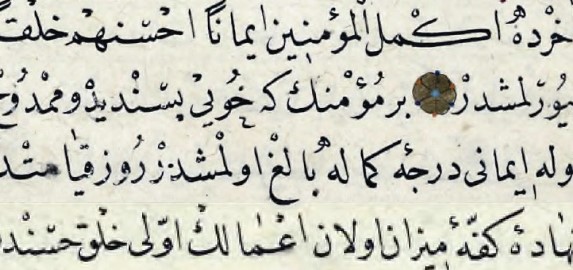 خرده اكمل المؤمنين ايمانا احسنهم خلقا
يورلمشدر بر مؤمنك كه خويى پسنديده و ممدوح
اوله ايمانى درجهٔ كماله بالغ اولمشدر روز قيامتده
نهاده كفهٔ ميزان اولان اعمالك اولى خلق حسندر